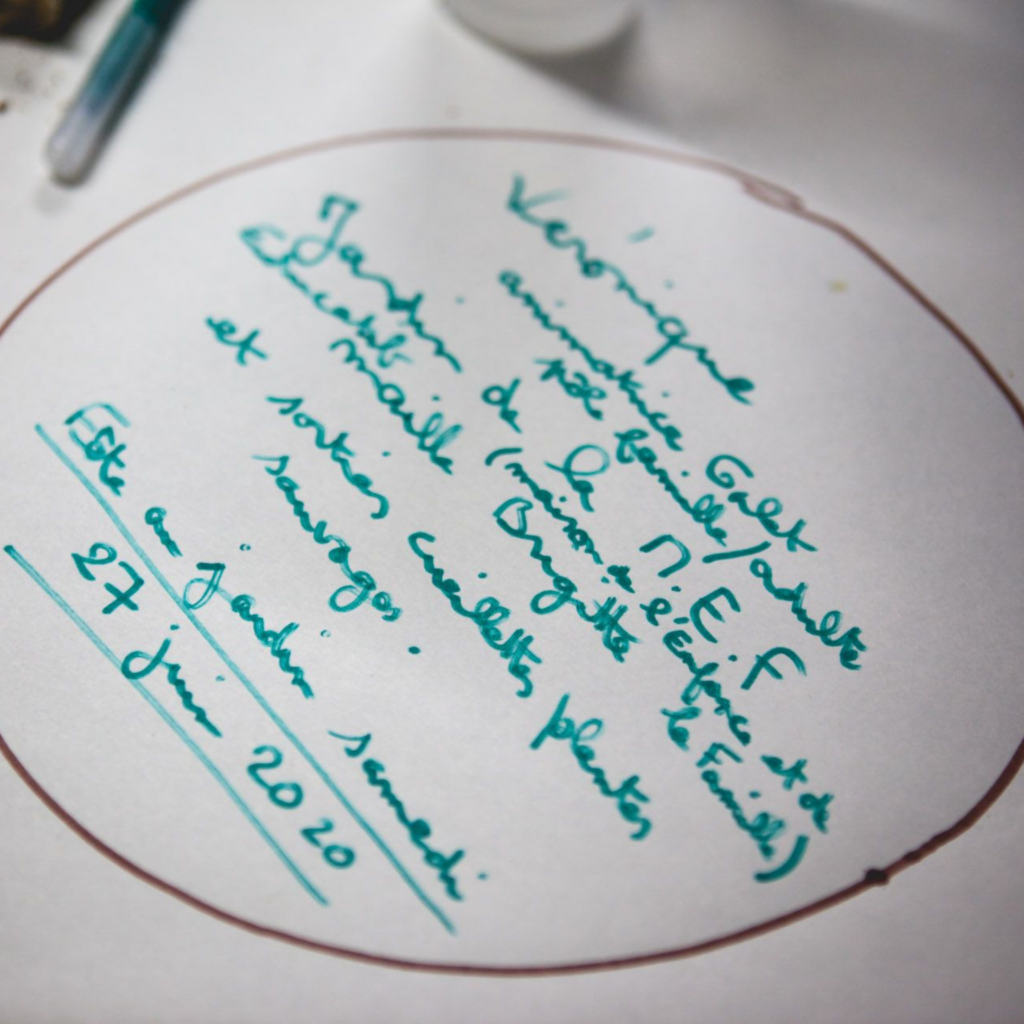 Véronique
animatrice Galet
pôle famille/adulte
Jardin de la M.E.F
(maison de l'Enfance et de
la Famille)
maille Brigitte
et sorties cueillettes plantes
sauvages.
Fête au Jardin samedi
27 juin 2020